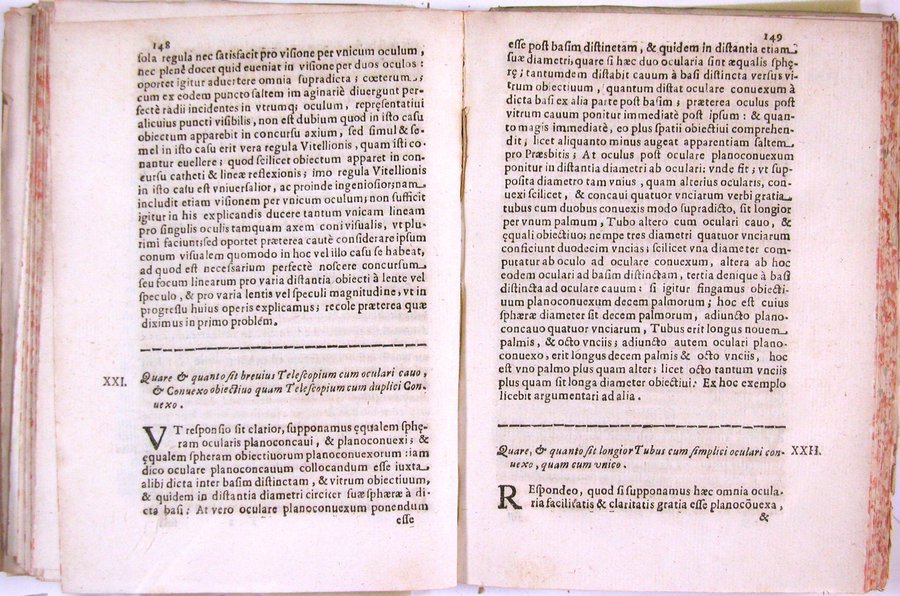 148
sola regula nec satisfacit pro visione per vnicum oculum,
nec plenè docet quid eueniat in visione per duos oculos:
oportet igitur aduertere omnia supradicta; cœterum;
cum ex eodem puncto saltem imaginariè diuergunt per-
fectè radii incidentes in vtrumq; oculum, repręsentatiui
alicuius puncti visibilis, non est dubium quod in isto casu
obiectum apparebit in concursu axium, sed simul & se-
mel in isto casu erit vera regula Vitellionis, quam isti co-
nantur euellere; quod scilicet obiectum apparet in con-
cursu catheti & lineæ reflexionis; imo regula Vitellionis
in isto casu est vniuersalior, ac proinde ingeniosior; nam
includit etiam visionem per vnicum oculum; non sufficit
igitur in his explicandis ducere tantum vnicam lineam
pro singulis oculis tamquam axem coni visualis, vt plu-
rimi faciunt; sed oportet præterea cautè considerare ipsum
conum visualem quomodo in hoc vel illo casu se habeat,
ad quod est necessarium perfectè noscere concursum
seu focum linearum pro varia distantia obiecti à lente vel
speculo, & pro varia lentis vel speculi magnitudine, vt in
progressu huius operis explicamus; recole præterea quæ
diximus in primo problem.
XXI. Quare & quanto sit breuius Telescopium cum oculari cauo,
& Conuexo obiectiuo quam Telescopium cum duplici Con-
uexo.
VT responsio sit clarior, supponamus ęqualem sphę-
ram ocularis planoconcaui, & planoconuexi; &
ęqualem spheram obiectiuorum planoconuexorum: iam
dico oculare planoconcauum collocandum esse iuxta
alibi dicta inter basim distinctam, & vitrum obiectiuum,
& quidem in distantia diametri circiter suæ sphæræ à di-
cta basi: At vero oculare planoconuexum ponendum
esse
149
esse post basim distinctam, & quidem in distantia etiam
suæ diametri; quare si hæc duo ocularia sint æqualis sphę-
rę; tantumdem distabit cauum à basi distincta versus vi-
trum obiectiuum, quantum distat oculare conuexum à
dicta basi ex alia parte post basim; præterea oculus post
vitrum cauum ponitur immediatè post ipsum: & quan-
to magis immediatè, eo plus spatii obiectiui comprehen-
dit; licet aliquanto minus augeat apparentiam saltem
pro Præsbitis; At oculus post oculare planoconuexum
ponitur in distantia diametri ab oculari: vnde fit; vt sup-
posita diametro tam vnius, quam alterius ocularis, con-
uexi scilicet, & concaui quatuor vnciarum verbi gratia
tubus cum duobus conuexis modo supradicto, sit longior
per vnum palmum, Tubo altero cum oculari cauo, &
ęquali obiectiuo; nempe tres diametri quatuor vnciarum
conficiunt duodecim vncias; scilicet vna diameter com-
putatur ab oculo ad oculare conuexum, altera ab hoc
eodem oculari ad basim distinctam, tertia denique à basi
distincta ad oculare cauum: si igitur fingamus obiecti-
uum planoconuexum decem palmorum; hoc est cuius
sphæræ diameter sit decem palmorum, adiuncto plano-
concauo quatuor vnciarum, Tubus erit longus nouem
palmis, & octo vnciis; adiuncto autem oculari plano-
conuexo, erit longus decem palmis & octo vnciis, hoc
est vno palmo plus quam alter; licet octo tantum vnciis
plus quam sit longa diameter obiectiui: Ex hoc exemplo
licebit argumentari ad alia.
Quare, & quanto sit longior Tubus cum simplici oculari con- XXII.
uexo, quam cum vnico.
REspondeo, quod si supponamus hæc omnia ocula-
ria facilitatis & claritatis gratia esse planocōuexa,
&